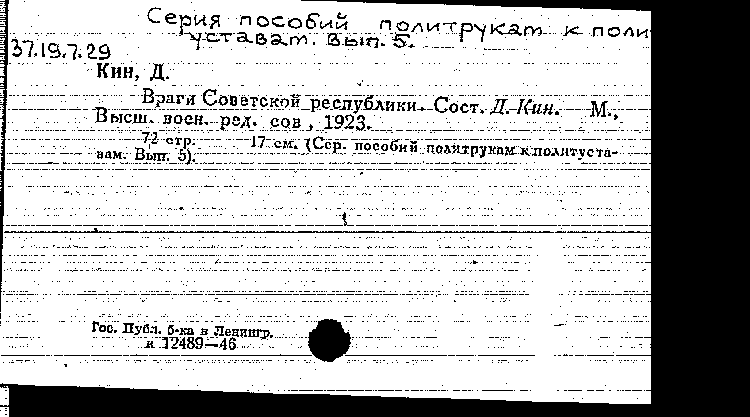 Серия пособий политрукам к поли
уставам. Вып. 5.
37.19.7.29
Кин, Д.
Враги Советской республики. Сост. Д. Кин. М.,
Высш. воен. ред. сов , 1923.
72 стр. 17 см. (Сер. пособий политрукам к политуста-
вам. Вып. 5).
Гос. Публ. б-ка в Ленингр.
к 12489—46